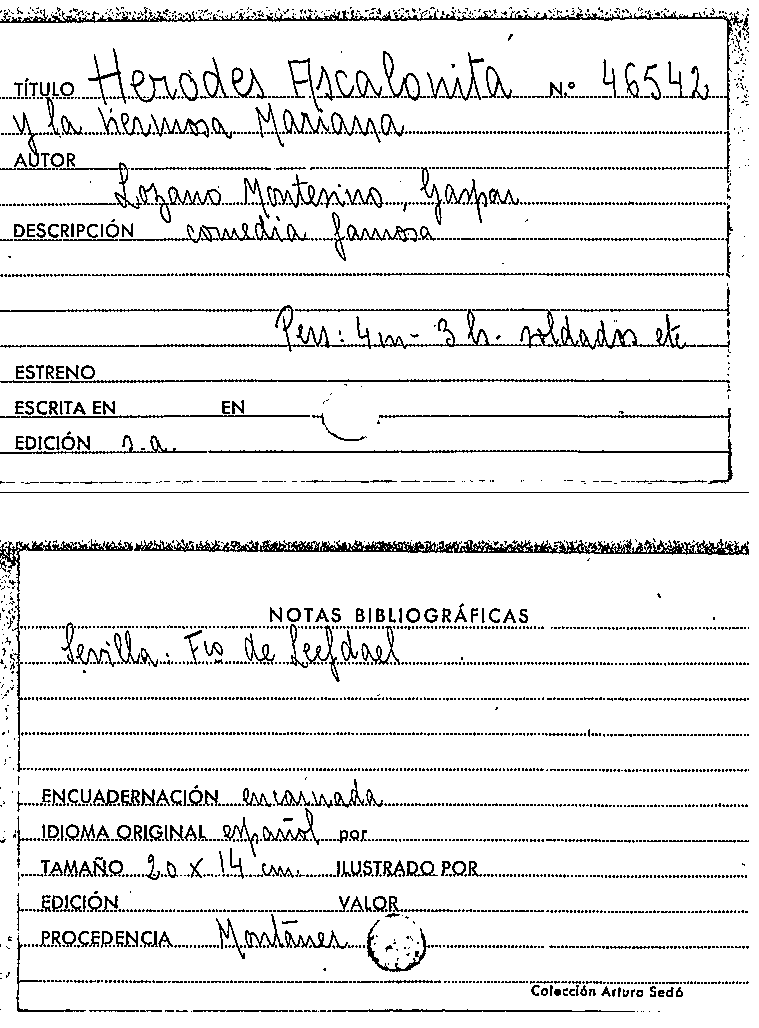 TÍTULO Herodes Ascalonita N.º 46542
y la hermosa Mariana
AUTOR
Lozano Montesino, Gaspar
DESCRIPCIÓN comedia famosa
Pers: 4m - 3 h. soldados etc
ESTRENO
ESCRITA EN EN
EDICIÓN s.a.
NOTAS BIBLIOGRÁFICAS
Sevilla: Fco de Leefdael
ENCUADERNACIÓN encarnada
IDIOMA ORIGINAL español por
TAMAÑO 20 x 14 cm. ILUSTRADO POR
EDICIÓN VALOR
PROCEDENCIA Montaner
Colección Arturo Sedó